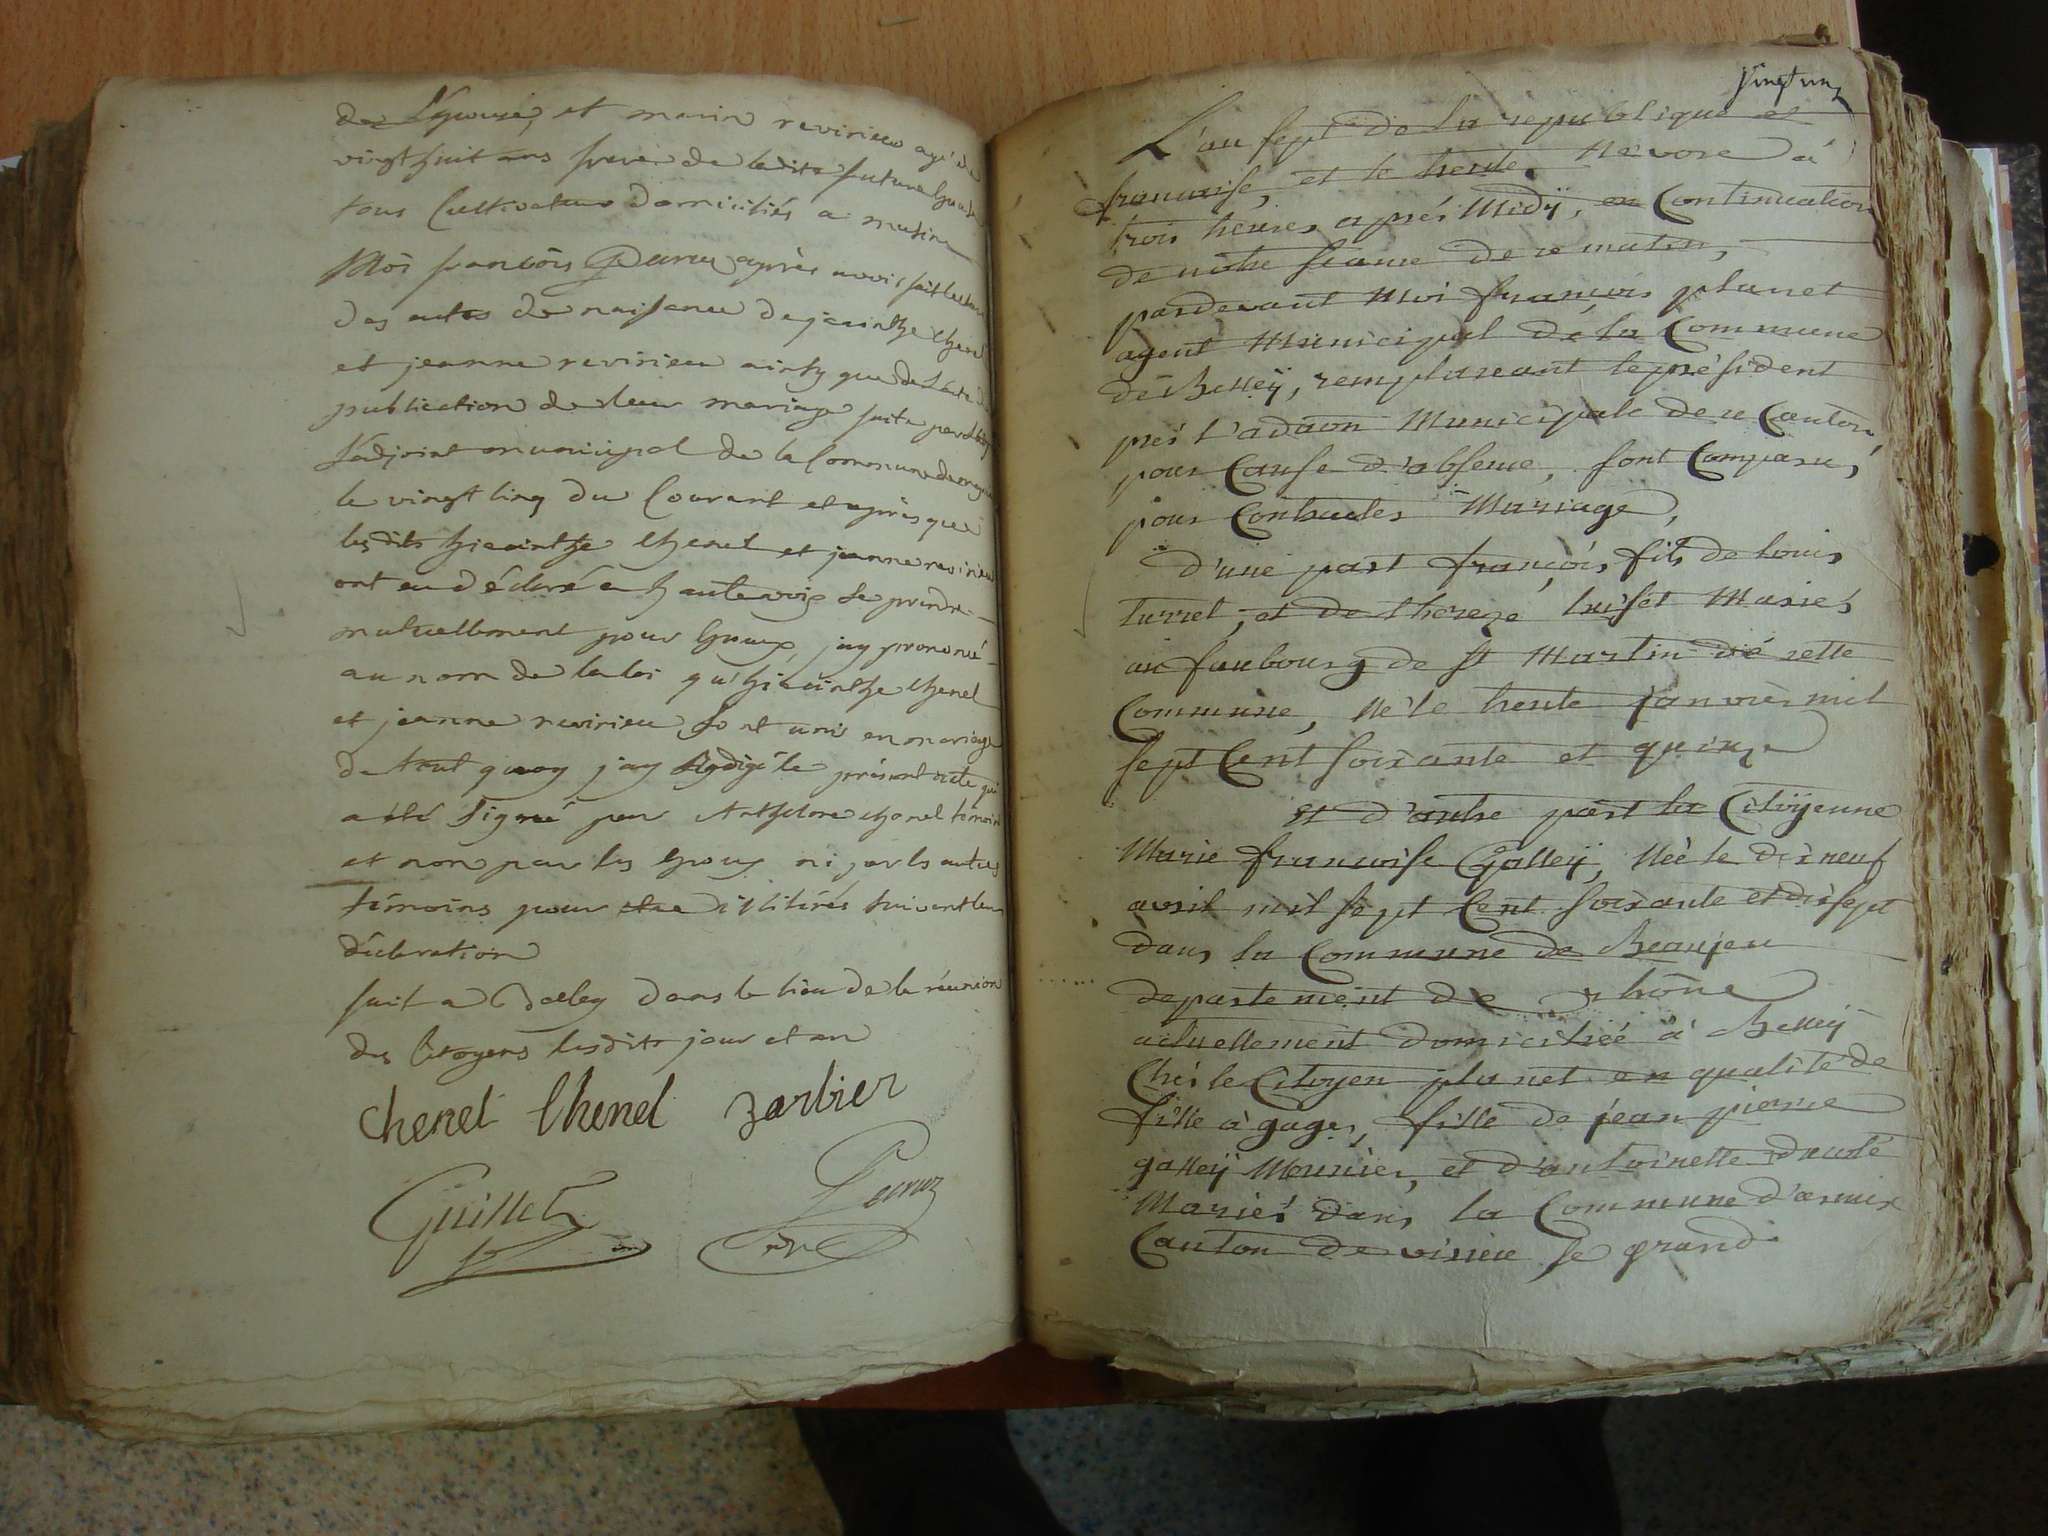 de L'Epouse, et marin revirieu agé de
vingt huit ans frere de ladite future Epouse
tous Cultivateurs domiciliés a
Moi françois après avoir fait lecture
des actes de naissance de jacinthe chenel
et jeanne revirieu ainsy que de L'acte de
publication de leur mariage faite par
L'adjoint municipal de la Commune de
le vingt Cinq du Courant et après que
lesdits hiacinthe Chenel et jeanne revirieu
ont eu déclaré a haute voix se prendre
mutuellement pour Epoux, jay prononcé
au nom de la loi qu'hiacinthe chenel
et jeanne revirieu sont unis en mariage
de tout quoy jay Redigé le présent acte qui
a été signé par Anthelme chenel témoin
et non par les Epoux ni par les autres
témoins pour etre illitérés suivant leur
déclaration
fait a Belley dans le lieu de la réunion
des Citoyens lesdits jour et an
chenel Chenel barbier
Guillet
vingt un
L'an sept de la republique
francaise, et le trente Nivose à
trois heures après Midÿ, en Continuation
de notre seance de ce matin,
pardevant Moi françois planet
agent Municipal de la Commune
de Belleÿ, remplaceant le président
près l'adaon Municipale de ce Canton,
pour Cause d'absence, sont Comparus,
pour Contracter Mariage,
D'une part françois, fils de louis
turrel, et de thereze Mariés
au faubourg de St Martin de cette
Commune, Né le trente janvier mil
sept Cent soixante et quinze
et d'autre part la Citoÿenne
Marie francoise Galleÿ, Née le dix neuf
avril mil sept Cent soixante et dix sept
dans la Commune de Beaujeu
departement de rhône
actuellement domiciliée à Belleÿ
Chés le Citoyen planet en qualité de
fille à gages, fille de jean pierre
galleÿ Meunier, et d'antoinette
Mariés dans la Commune d'
Canton de virieu le grand